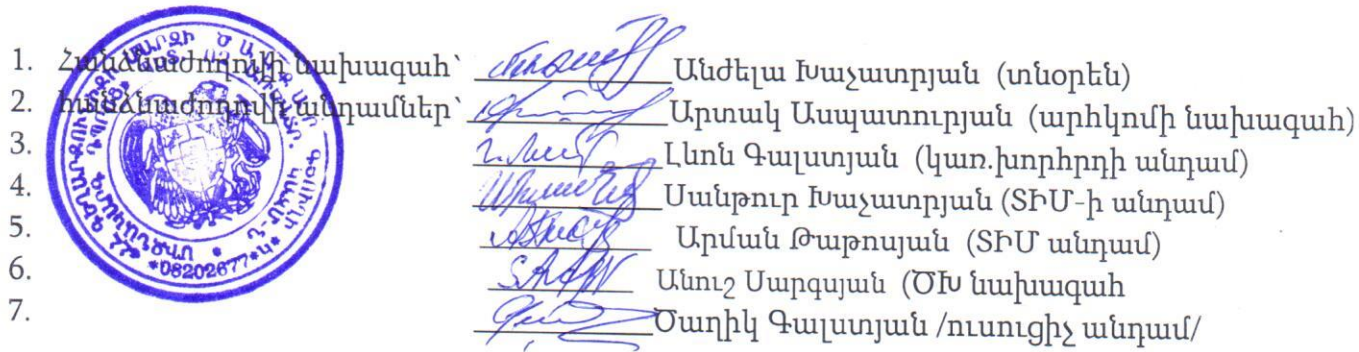 1. Հանձնաժողովի նախագահ՝ Անժելա Խաչատրյան (տնօրեն)
2. հանձնաժողովի անդամներ՝ Արտակ Ասպատուրյան (արհկոմի նախագահ)
3. Լևոն Գալստյան (կառ.խորհրդի անդամ)
4. Սանթուր Խաչատրյան (ՏԻՄ-ի անդամ)
5. Արման Թաթոսյան (ՏԻՄ անդամ)
6. Անուշ Սարգսյան (ԾԽ նախագահ
7. Ծաղիկ Գալստյան /ուսուցիչ անդամ/
*08202677*